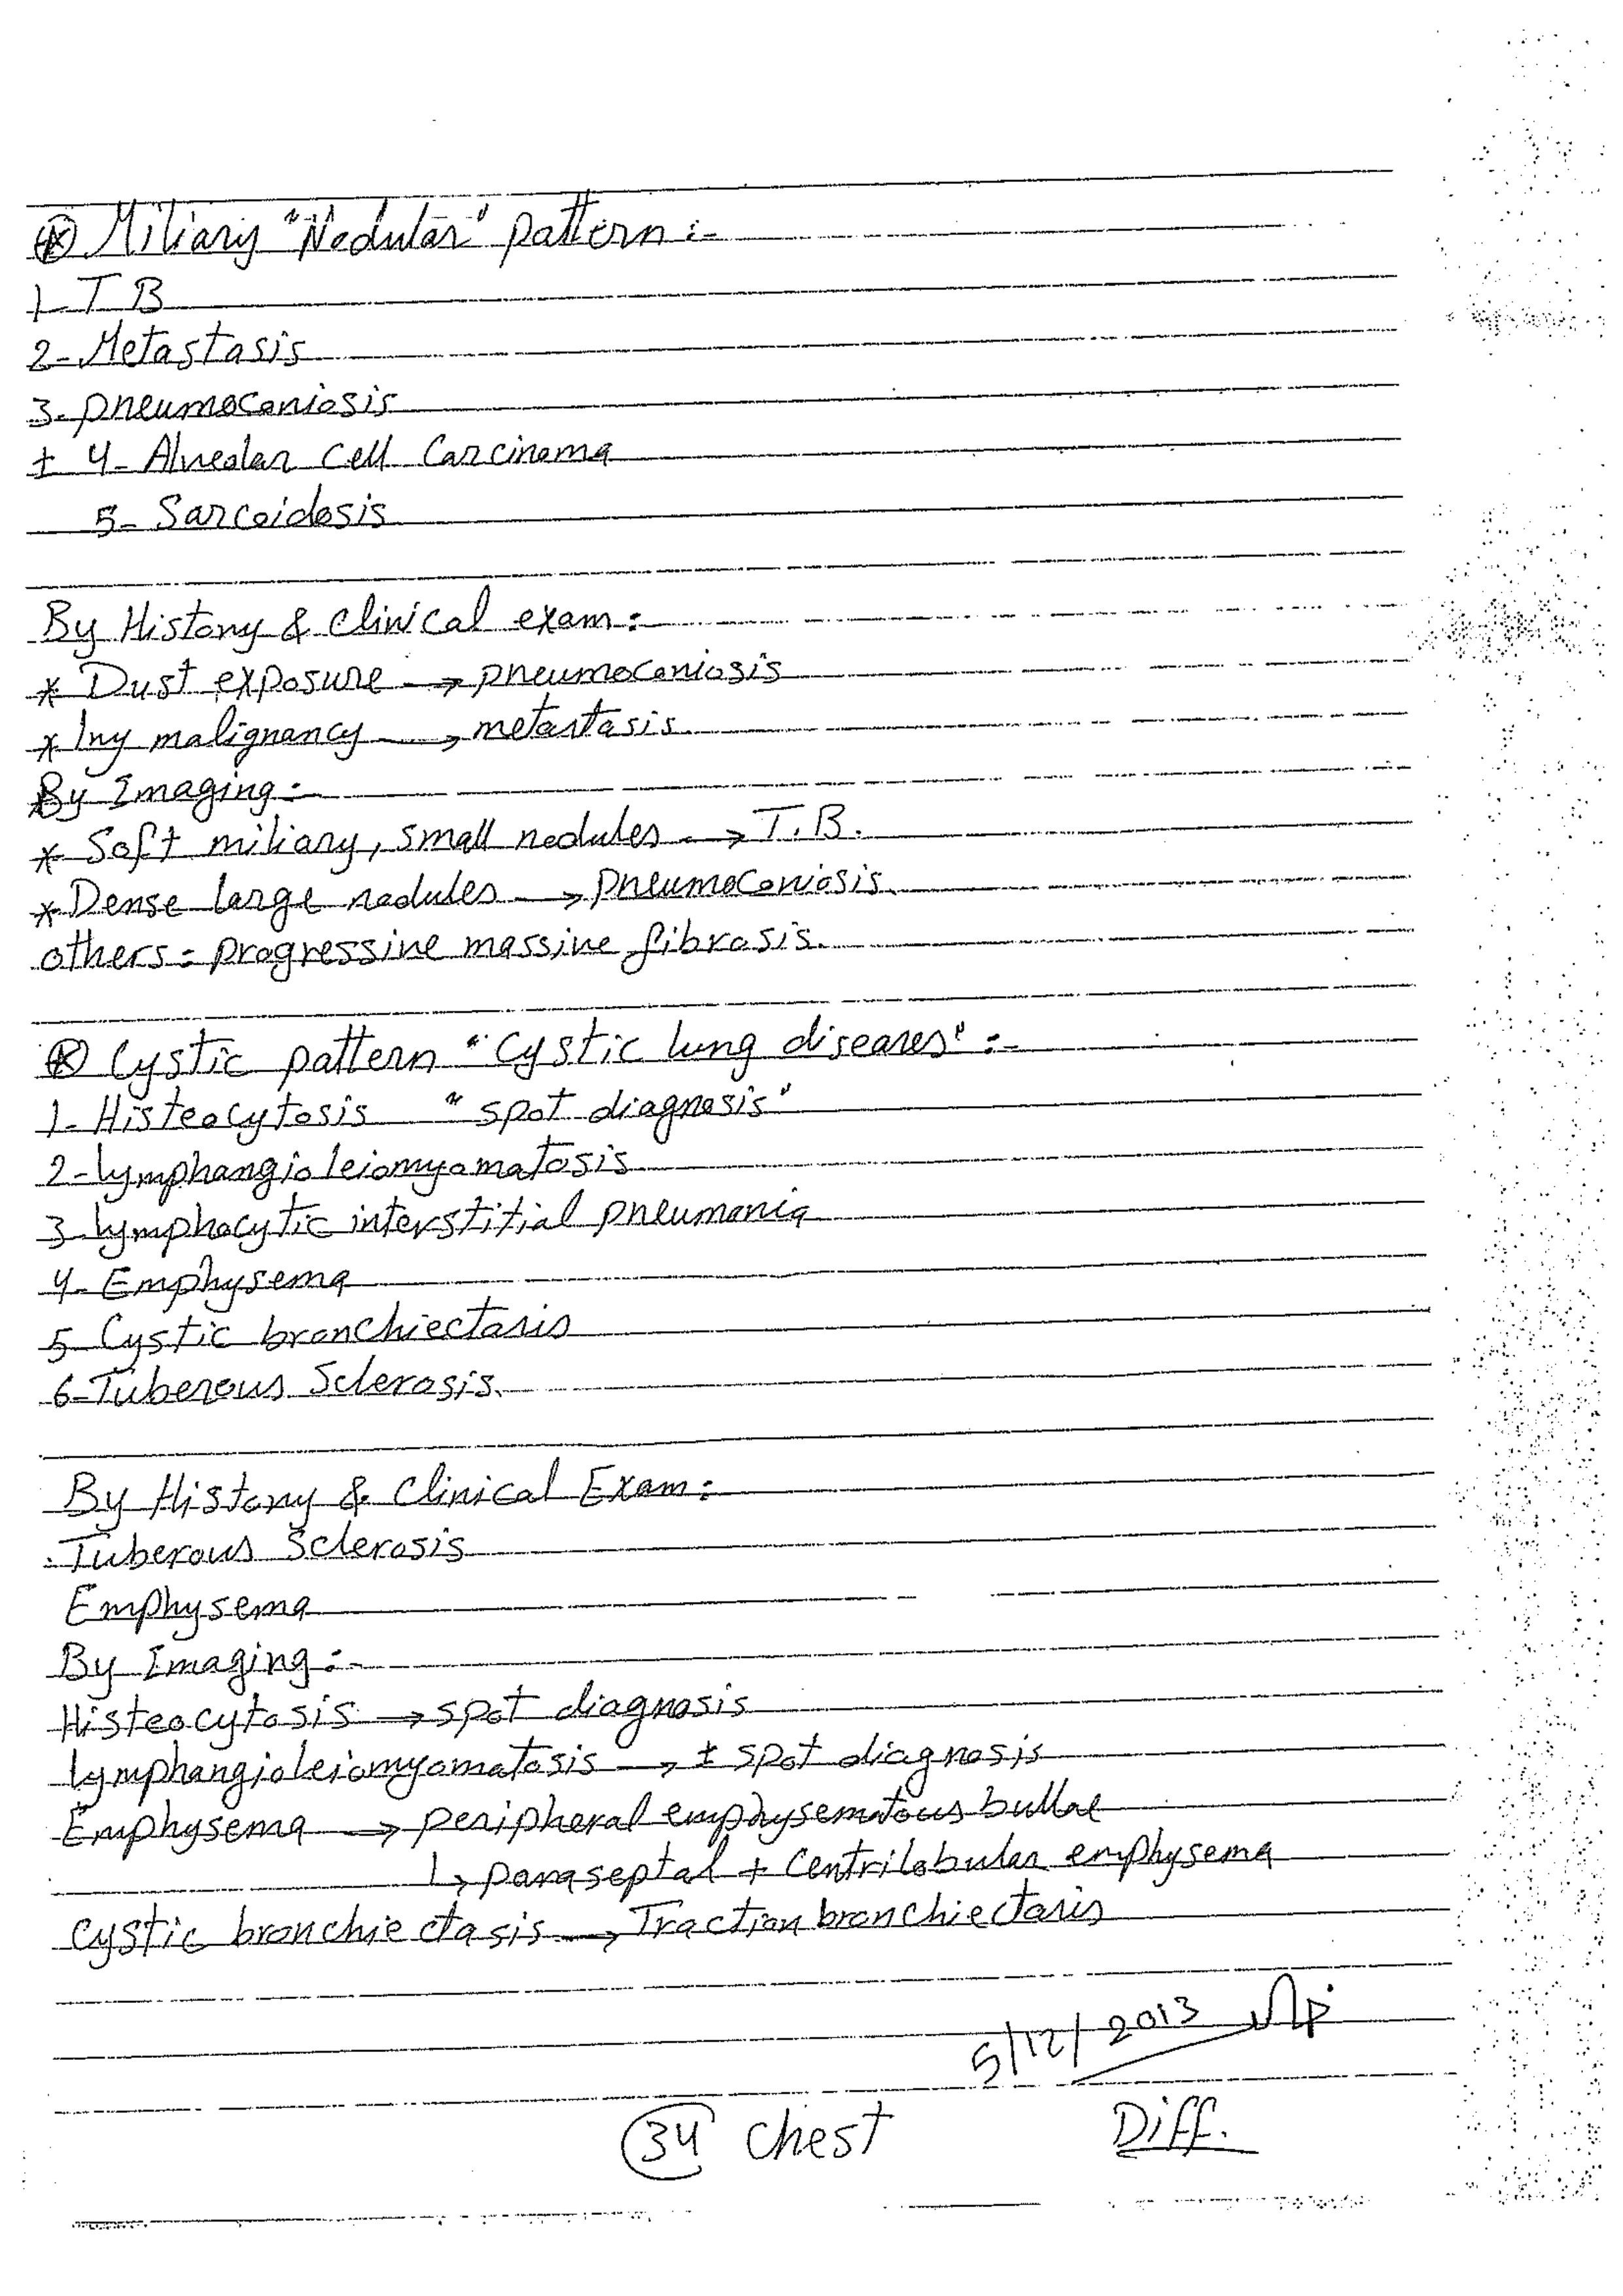 ⊛ Miliary "Nodular" pattern :-
1- T B
2- Metastasis
3- pneumoconiosis
± 4- Alveolar cell Carcinoma
5- Sarcoidosis
By History & clinical exam :
* Dust exposure → pneumoconiosis
* 1ry malignancy → metastasis
By Imaging :-
* Soft miliary, small nodules → T.B.
* Dense large nodules → pneumoconiosis
others : progressive massive fibrosis.
⊛ Cystic pattern "Cystic lung diseases" :-
1- Histeocytosis "spot diagnosis"
2- lymphangioleiomyomatosis
3- lymphocytic interstitial pneumonia
4- Emphysema
5- Cystic bronchiectasis
6- Tuberous Sclerosis.
By History & Clinical Exam :
. Tuberous Sclerosis
Emphysema
By Imaging :-
Histeocytosis → spot diagnosis
lymphangioleiomyomatosis → ± spot diagnosis
Emphysema → peripheral emphysematous bullae
↳ paraseptal + Centrilobular emphysema
cystic bronchiectasis → Traction bronchiectasis
5/12/2013
34 Chest Diff.